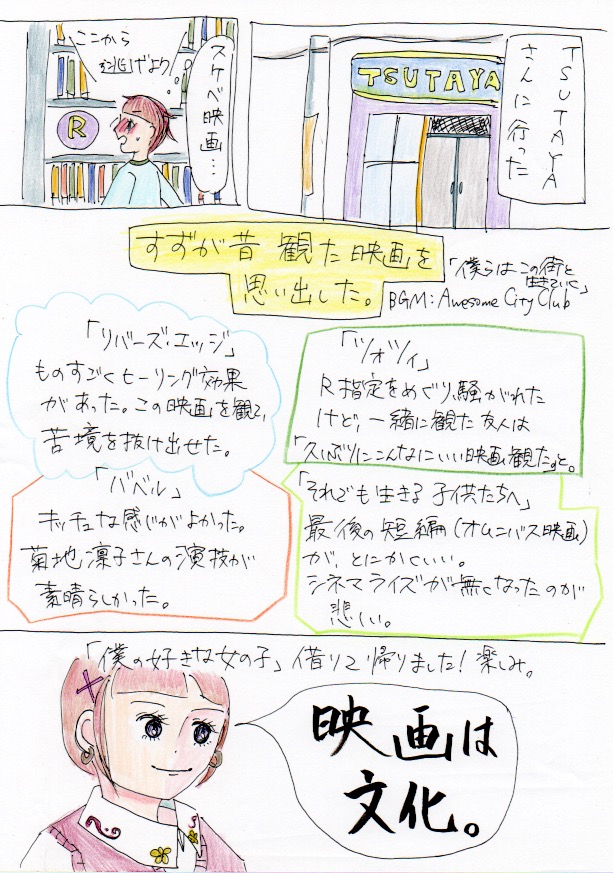 TSUTAYA
さんに行った
TSUTAYA
スケベ映画…
ここから
逃げよう。
R
すずが昔観た映画を
思い出した。
「僕らはこの街と
生きていく」
BGM: Awesome City Club
「リバーズ・エッジ」
ものすごくヒーリング効果
があった。この映画を観て、
苦境を抜け出せた。
「ツォツィ」
R指定をめぐり、騒がれた
けど、一緒に観た友人は
「久しぶりにこんなにいい映画観た」と。
「バベル」
キッチュな感じがよかった。
菊地凛子さんの演技が
素晴らしかった。
「それでも生きる子供たちへ」
最後の短編(オムニバス映画)
が、とにかくいい。
シネマライズが無くなったのが
悲しい。
「僕の好きな女の子」借りて帰りました!楽しみ。
映画は
文化。